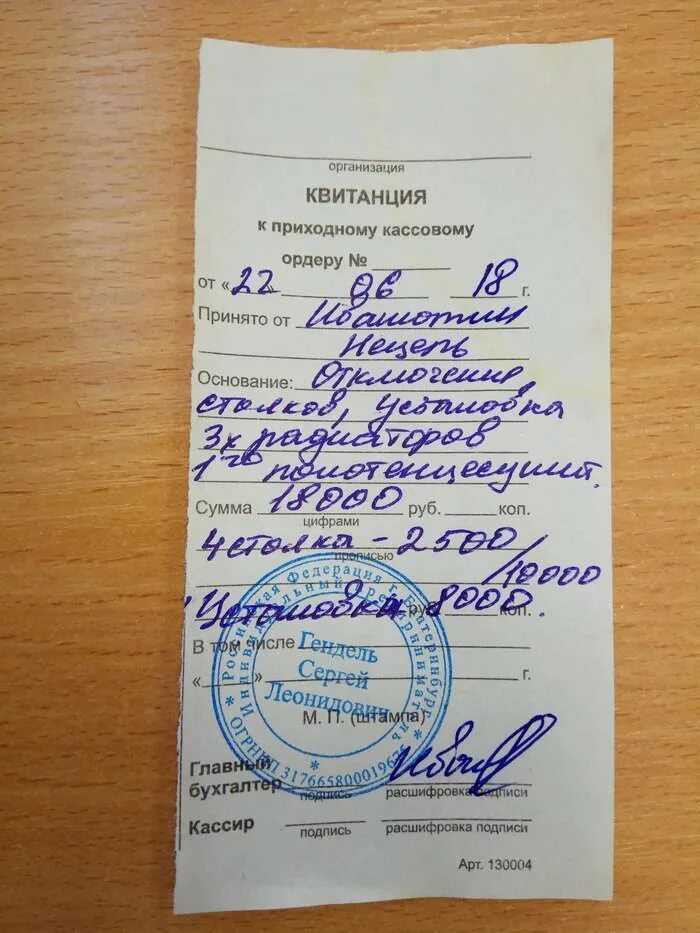 организация
КВИТАНЦИЯ
к приходному кассовому
ордеру №
от «22» 06 18 г.
Принято от
Основание: Отключение
стояков, установка
3х радиаторов
1го полотенцесушит.
Сумма 18000 руб. коп.
цифрами
4 стояка - 2500
прописью
/10000
Установка руб 8000. коп.
В том числе
« » г.
М. П. (штампа)
Российская Федерация г. Екатеринбург
Индивидуальный предприниматель
Гендель
Сергей
Леонидович
Главный
бухгалтер
подпись расшифровка подписи
Кассир
подпись расшифровка подписи
Арт. 130004